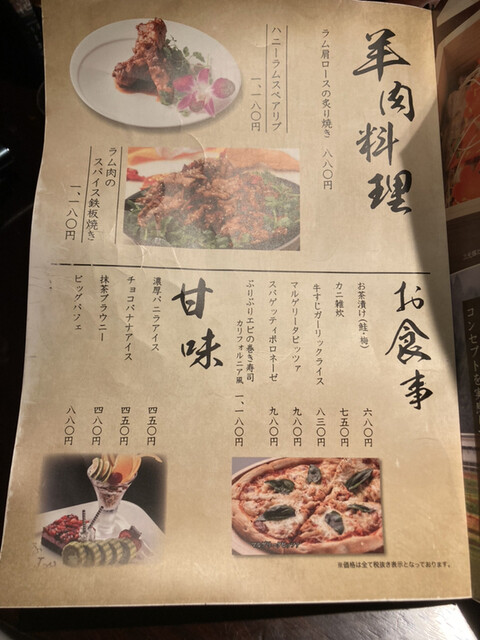 羊肉料理
ラム肩ロースの炙り焼き 八八〇円
ハニーラムスペアリブ
一、一八〇円
ラム肉の
スパイス鉄板焼き
一、一八〇円
お食事
お茶漬け(鮭・梅) 六八〇円
カニ雑炊 七五〇円
牛すじガーリックライス 八三〇円
マルゲリータピッツァ 九八〇円
スパゲッティボロネーゼ 九八〇円
ぷりぷりエビの巻き寿司
カリフォルニア風 一、一八〇円
甘味
濃厚バニラアイス 四五〇円
チョコバナナアイス 四五〇円
抹茶ブラウニー 四八〇円
ビッグパフェ 八八〇円
※価格は全て税抜き表示となっております。